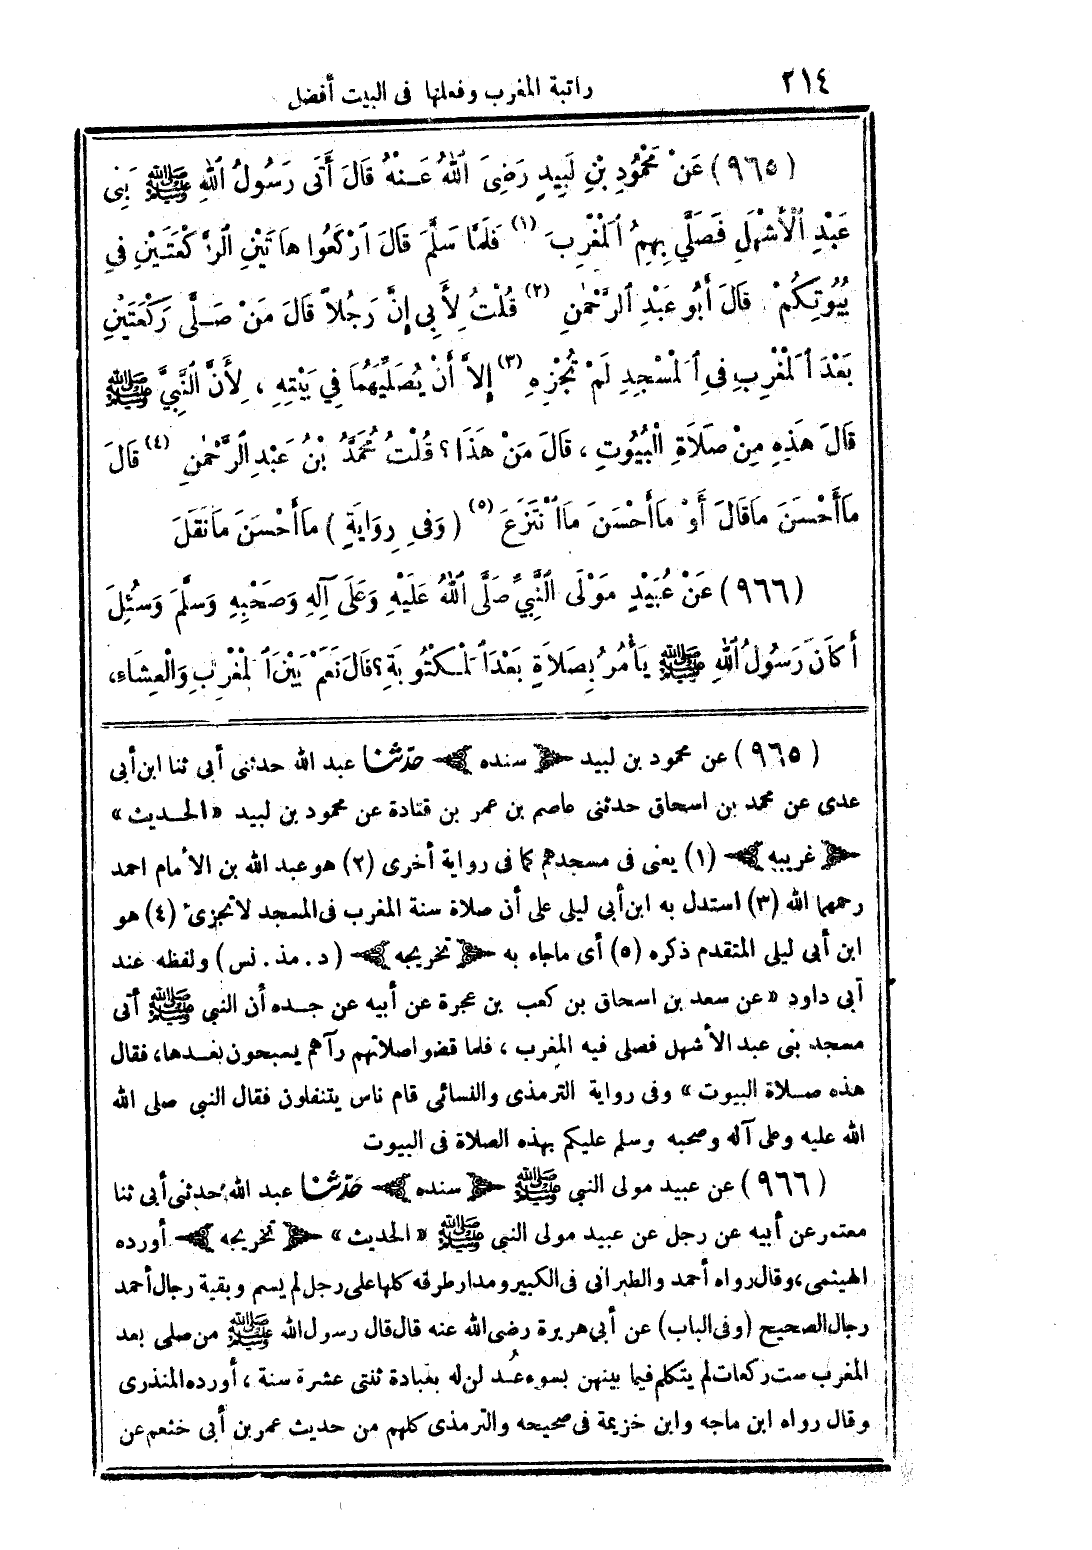 ٢١٤
راتبة المغرب وفعلها فى البيت أفضل
(٩٦٥) عَنْ مَحْمُودِ بْنِ لَبِيدٍ رَضِىَ اللهُ عَنْهُ قَالَ أَتَى رَسُولُ اللهِ ﷺ بَنِى
عَبْدِ الْأَشْهَلِ فَصَلَّى بِهِمُ الْمَغْرِبَ (١) فَلَمَّا سَلَّمَ قَالَ ارْكَعُوا هَاتَيْنِ الرَّكْعَتَيْنِ فِى
بُيُوتِكُمْ قَالَ أَبُو عَبْدِ الرَّحْمٰنِ (٢) قُلْتُ لِأَبِى إِنَّ رَجُلاً قَالَ مَنْ صَلَّى رَكْعَتَيْنِ
بَعْدَ الْمَغْرِبِ فِى الْمَسْجِدِ لَمْ تُجْزِهِ (٣) إِلاَّ أَنْ يُصَلِّيَهُمَا فِي بَيْتِهِ ، لِأَنَّ النَّبِيَّ ﷺ
قَالَ هَذِهِ مِنْ صَلَاةِ الْبُيُوتِ ، قَالَ مَنْ هَذَا ؟ قُلْتُ مُحَمَّدُ بْنُ عَبْدِ الرَّحْمٰنِ (٤) قَالَ
مَا أَحْسَنَ مَا قَالَ أَوْ مَا أَحْسَنَ مَا انْتَزَعَ (٥) (وَفِى رِوَايَةٍ) مَا أَحْسَنَ مَا نَقَلَ
(٩٦٦) عَنْ عُبَيْدٍ مَوْلَى النَّبِيِّ صَلَّى اللهُ عَلَيْهِ وَعَلَى آلِهِ وَصَحْبِهِ وَسَلَّمَ وَسُئِلَ
أَكَانَ رَسُولُ اللهِ ﷺ يَأْمُرُ بِصَلَاةٍ بَعْدَ الْمَكْتُوبَةِ ؟ قَالَ نَعَمْ بَيْنَ الْمَغْرِبِ وَالْعِشَاءِ ،
(٩٦٥) عن محمود بن لبيد ﴿سنده﴾ حدّثنا عبد الله حدثنى أبى ثنا ابن أبى
عدى عن محمد بن اسحاق حدثنى عاصم بن عمر بن قتادة عن محمود بن لبيد «الحديث»
﴿غريبه﴾ (١) يعنى فى مسجدهم كما فى رواية أخرى (٢) هو عبد الله بن الأمام احمد
رحمهما الله (٣) استدل به ابن أبى ليلى على أن صلاة سنة المغرب فى المسجد لا تجزىء (٤) هو
ابن أبى ليلى المتقدم ذكره (٥) أى ما جاء به ﴿تخريجه﴾ (د . مذ . نس) ولفظه عند
أبى داود «عن سعد بن اسحاق بن كعب بن عجرة عن أبيه عن جده أن النبى ﷺ أتى
مسجد بنى عبد الأشهل فصلى فيه المغرب ، فلما قضوا صلاتهم رآهم يسبحون بعدها ، فقال
هذه صلاة البيوت» وفى رواية الترمذى والنسائى قام ناس يتنفلون فقال النبى صلى الله
الله عليه وعلى آله وصحبه وسلم عليكم بهذه الصلاة فى البيوت
(٩٦٦) عن عبيد مولى النبى ﷺ ﴿سنده﴾ حدّثنا عبد الله حدثنى أبى ثنا
معتمر عن أبيه عن رجل عن عبيد مولى النبى ﷺ «الحديث» ﴿تخريجه﴾ أورده
الهيثمى ، وقال رواه أحمد والطبرانى فى الكبير ومدار طرقه كلها على رجل لم يسم وبقية رجال أحمد
رجال الصحيح (وفى الباب) عن أبى هريرة رضى الله عنه قال قال رسول الله ﷺ من صلى بعد
المغرب ست ركعات لم يتكلم فيما بينهن بسوء عُد لن له بعبادة ثنتى عشرة سنة ، أورده المنذرى
وقال رواه ابن ماجه وابن خزيمة فى صحيحه والترمذى كلهم من حديث عمر بن أبى خثعم عن